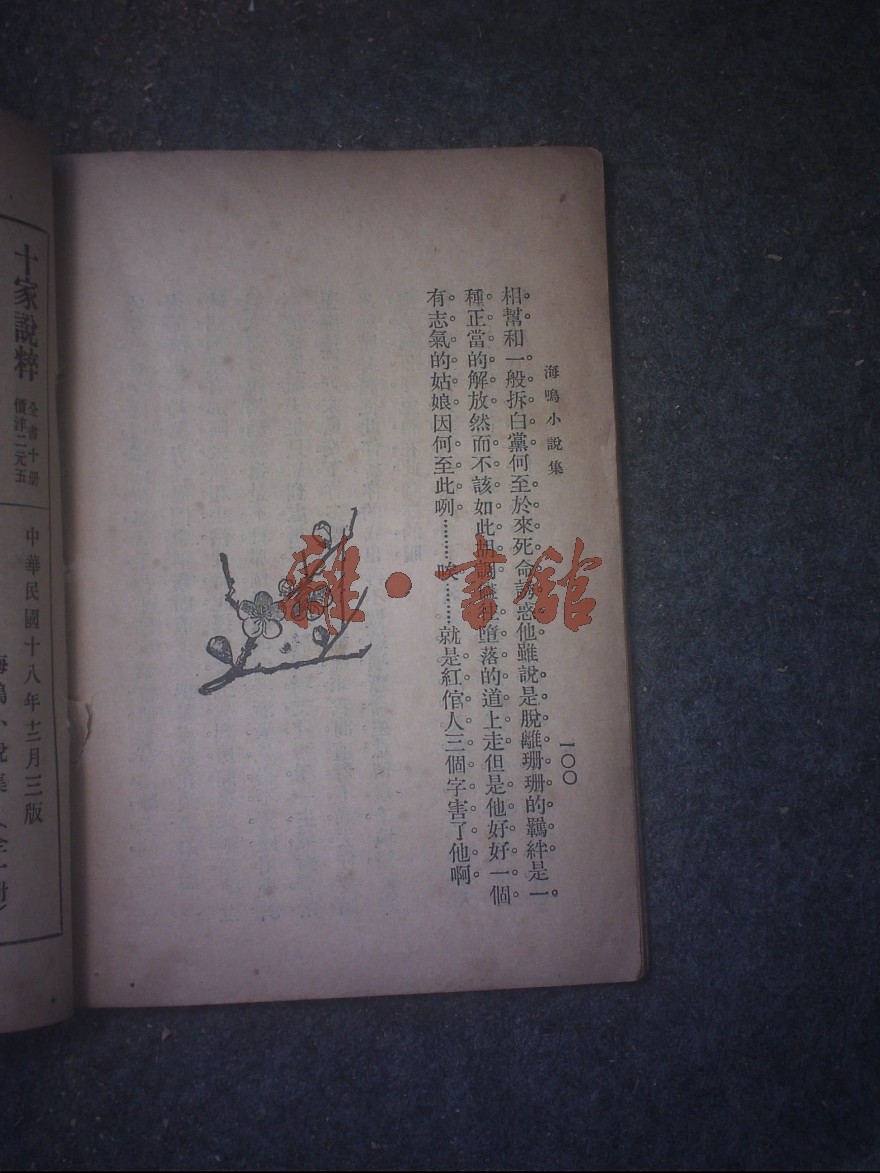 海鳴小說集
一〇〇
相幫和一般拆白黨何至於來死命誘惑他雖說是脫離珊珊的羈絆是一
種正當的解放然而不該如此墮落的道上走但是他好好一個
有志氣的姑娘因何至此咧…………唉…………就是紅倌人三個字害了他啊
雜·書館
十家說粹
全書十册
價洋二元五
中華民國十八年十二月三版
海鳴小說集